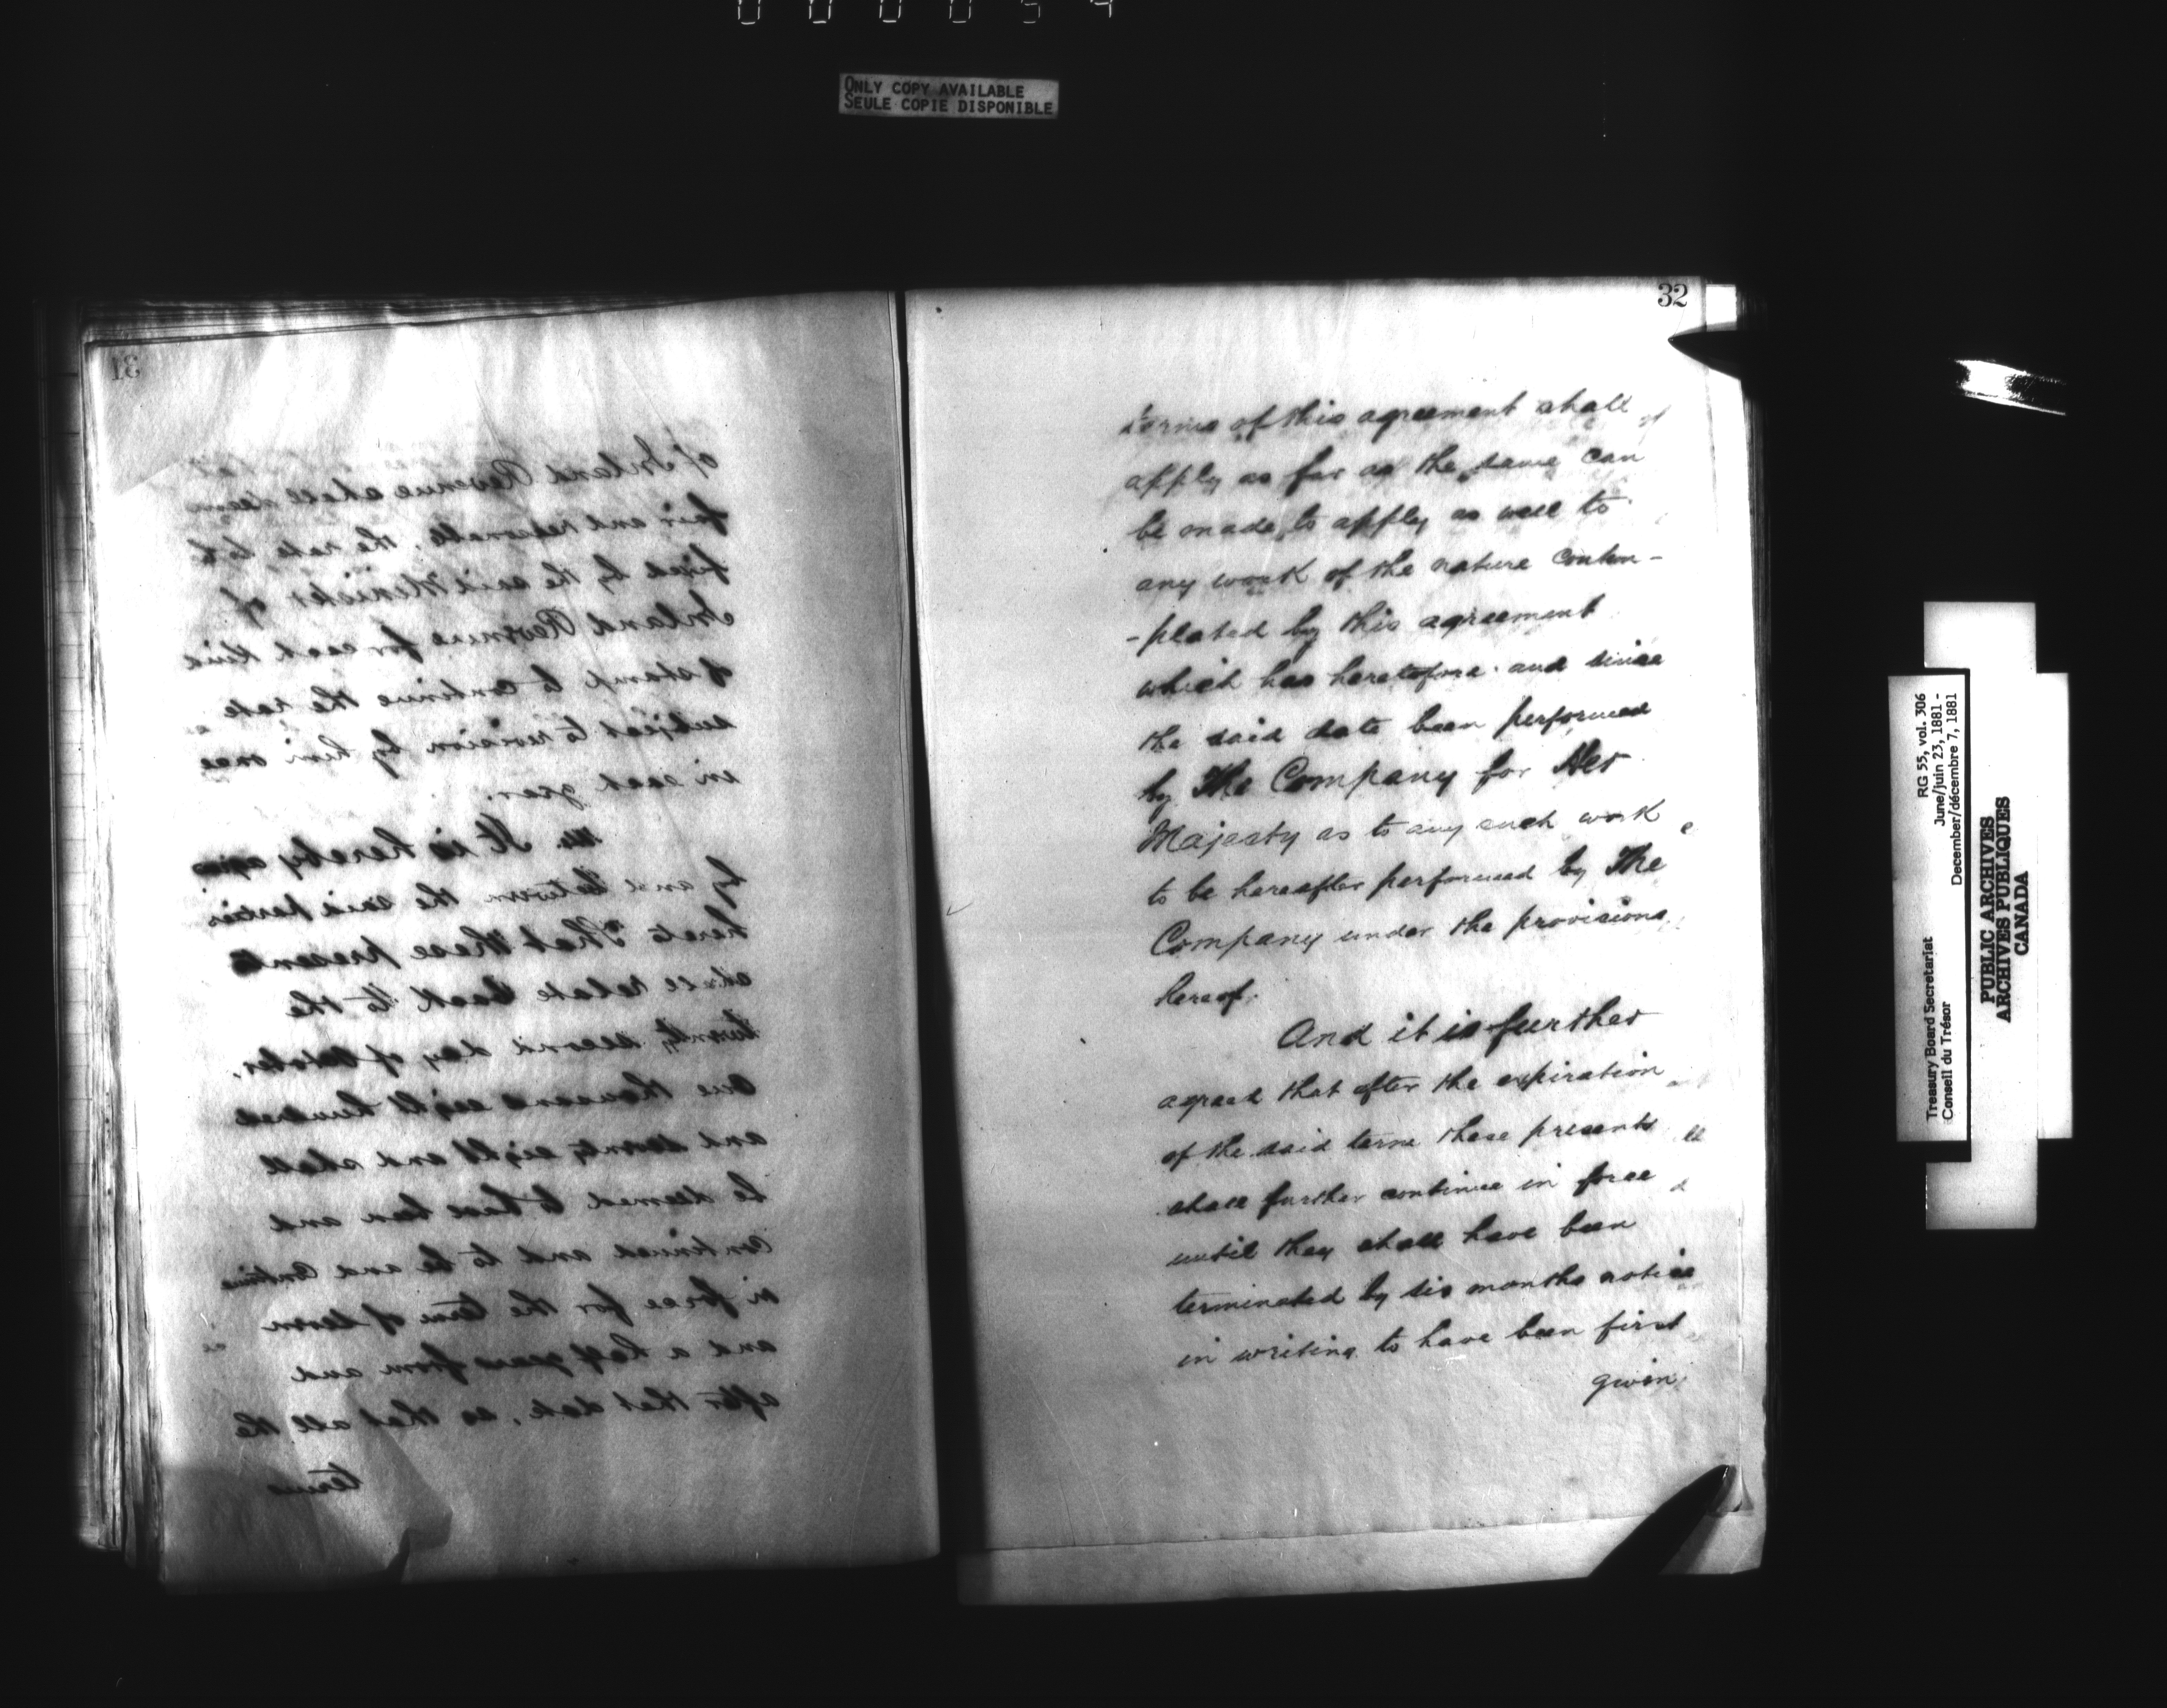 ONLY COPY AVAILABLE
SEULE COPIE DISPONIBLE
31
of Inland Revenue shall deem
fair and reasonable, the rate to be
fixed by the said Minister of
Inland Revenue for each kind
of stamp to continue the rate
subject to revision by him once
in each year.
It is hereby agreed
by and between the said parties
hereto That these presents
shall relate back to the
twenty second day of October,
one thousand eight hundred
and seventy eight and shall
be deemed to have been and
continued and to be and continue
in force for the term of seven
and a half years from and
after that date, so that all the
terms
32
terms of this agreement shall
apply as far as the same can
be made to apply as well to
any work of the nature contem-
-plated by this agreement
which has heretofore and since
the said date been performed
by The Company for Her
Majesty as to any such work
to be hereafter performed by The
Company under the provisions
hereof.
And it is further
agreed that after the expiration
of the said term these presents
shall further continue in force
until they shall have been
terminated by six months notice
in writing to have been first
given
Treasury Board Secretariat
Conseil du Trésor
RG 55, vol. 306
June/juin 23, 1881 -
December/décembre 7, 1881
PUBLIC ARCHIVES
ARCHIVES PUBLIQUES
CANADA